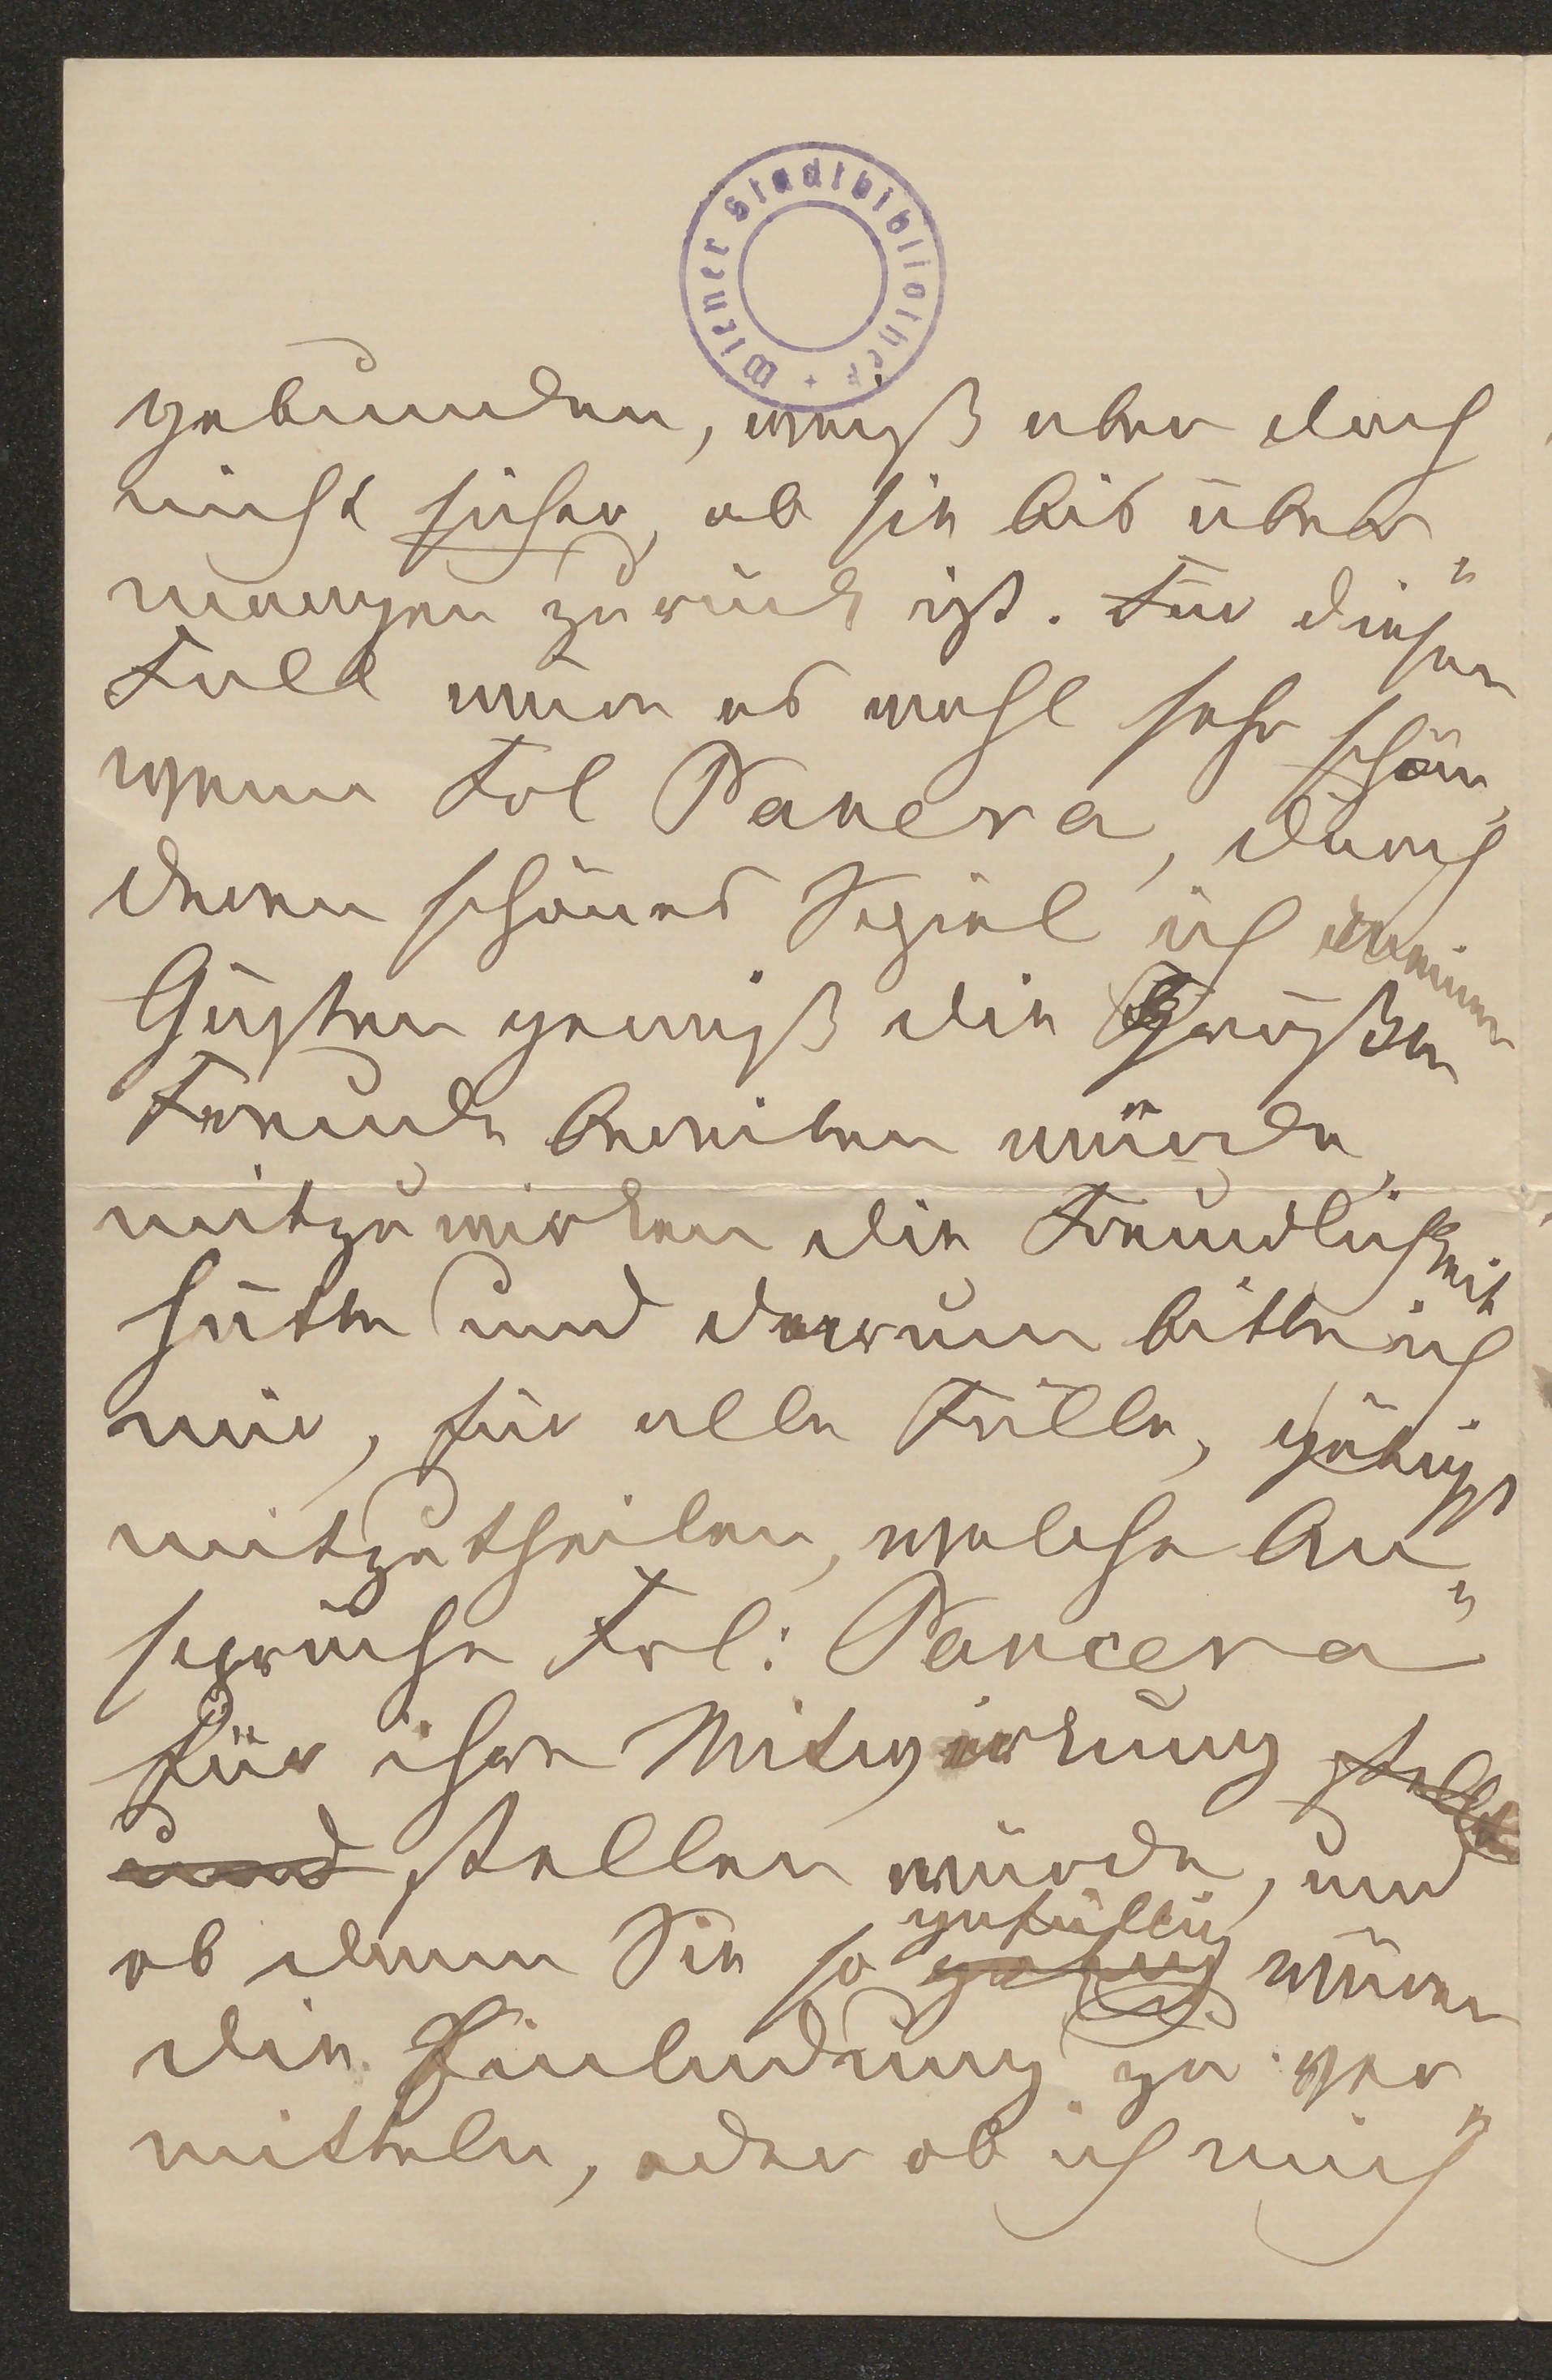 Wiener Stadtbibliothek
gebunden, weiß aber doch
nicht sicher, ob sie bis über„
morgen zurück ist. Für diesen
Fall wäre es wohl sehr schön,
wenn Frl Pancera, durch
deren schönes Spiel ich meinen
Gästen gewiß die größte
Freude bereiten würde,
mitzuwirken die Freundlichkeit
hätte und darum bitte ich
mir, für alle Fälle, gütigst
mitzutheilen, welche An„
sprüche Frl: Pancera
für ihre Mitwirkung stellt
und stellen würde, und
ob dann Sie so gefällig
gütig wären
die Einladung zu ver„
mitteln, oder ob ich mich